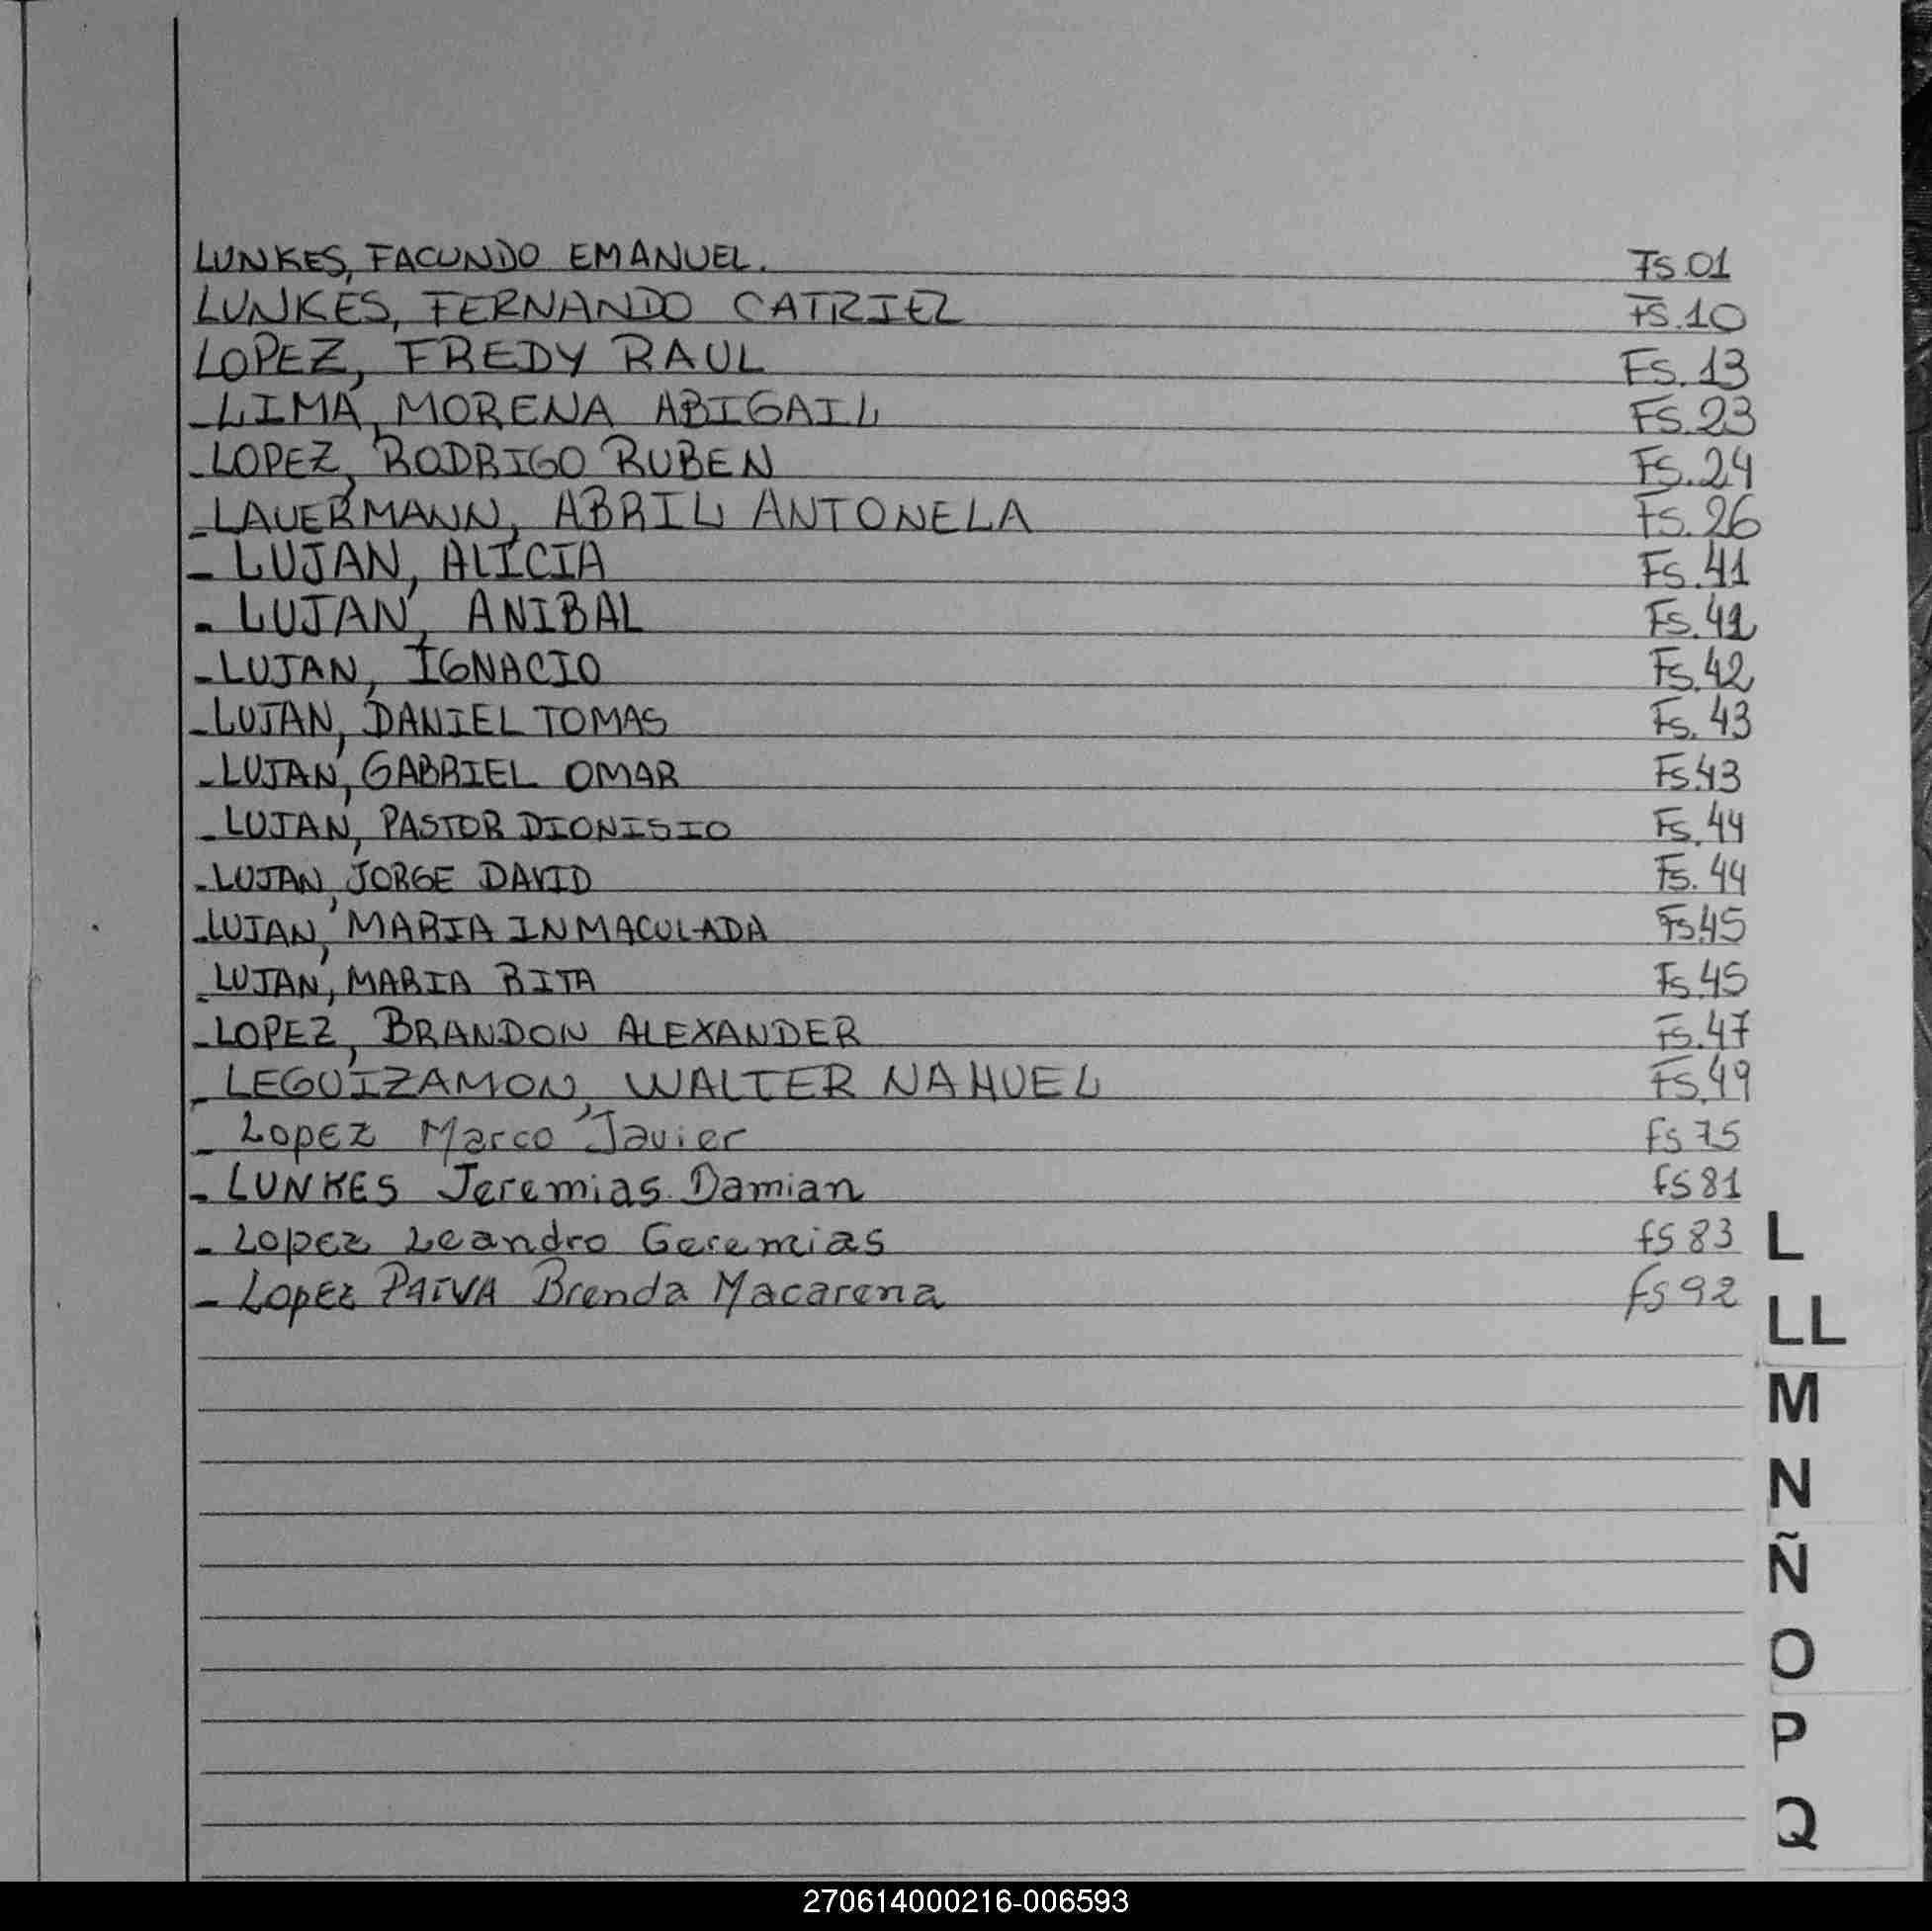 LUNKES, FACUNDO EMANUEL. Fs.01
LUNKES, FERNANDO CATRIEL Fs.10
LOPEZ, FREDY RAUL Fs.13
-LIMA, MORENA ABIGAIL Fs.23
-LOPEZ, RODRIGO RUBEN Fs.24
-LAUERMANN, ABRIL ANTONELA Fs.26
- LUJAN, ALICIA Fs.41
- LUJAN, ANIBAL Fs.41
-LUJAN, IGNACIO Fs.42
-LUJAN, DANIEL TOMAS Fs.43
-LUJAN, GABRIEL OMAR Fs.43
-LUJAN, PASTOR DIONISIO Fs.44
-LUJAN, JORGE DAVID Fs.44
-LUJAN, MARIA INMACULADA Fs.45
-LUJAN, MARIA RITA Fs.45
-LOPEZ, BRANDON ALEXANDER Fs.47
- LEGUIZAMON, WALTER NAHUEL Fs.49
- Lopez Marco Javier fs 75
- LUNKES Jeremias Damian fs 81
- Lopez Leandro Geremias fs 83
- Lopez PAIVA Brenda Macarena fs 92
L
LL
M
N
Ñ
O
P
Q
270614000216-006593